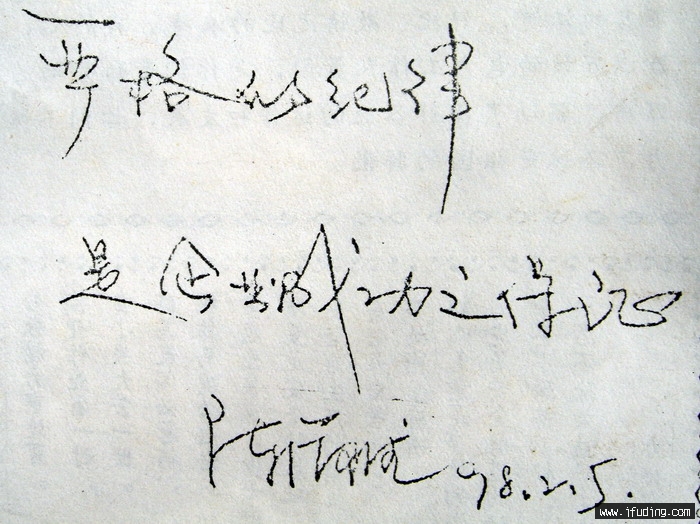 严格的纪律
是企业成功之保证
陈 98.2.5.
www.ifuding.com